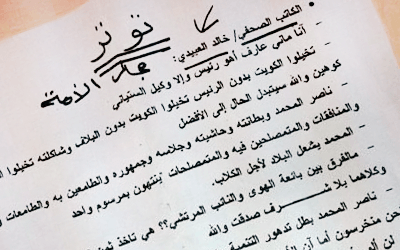 تويتر
مجلس الأمة
• الكاتب الصحفي/ خالد العبيدي:
– أنا ماني عارف أهو رئيس والا وكيل السيتياني
– تخيلوا الكويت بدون الرئيس تخيلوا الكويت بدون البلاف وشاكلته تخيلوا ا
كوهين والله سيتبدل الحال إلى الأفضل
– ناصر المحمد وبطانته وحاشيته وجلاسه وجمهوره والطامعين به والطامعات و
والمنافقات والمتمصلحين فيه والمتمصلحات ينتهون بمرسوم واحد
– المحمد يشعل البلاد لأجل الكلاب.
– مالفرق بين بائعة الهوى والنائب المرتشي؟؟ هي تاخذ
وكلاهما بلا شــــرف صدقت والله
– ناصر المحمد بطل تدهور التنمية
حن منخرسون أما آن